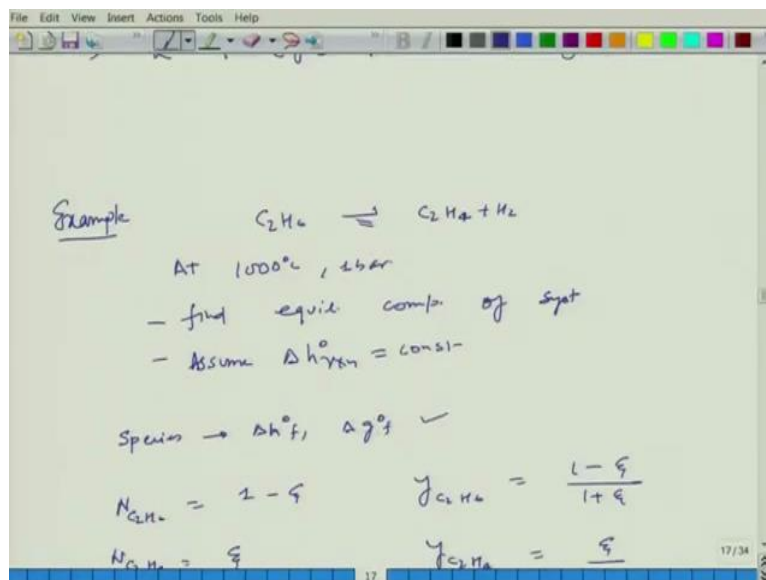 File Edit View Insert Actions Tools Help
Example C₂H₆ ⇌ C₂H₄ + H₂
At 1000°C, 1bar
- find equil. comp. of syst
- Assume Δh°rxn = const
Species → Δh°f, Δg°f ✓
N_C₂H₆ = 1 - ξ y_C₂H₆ = (1 - ξ)/(1 + ξ)
N_C₂H₄ = ξ y_C₂H₄ = ξ
17/34
17